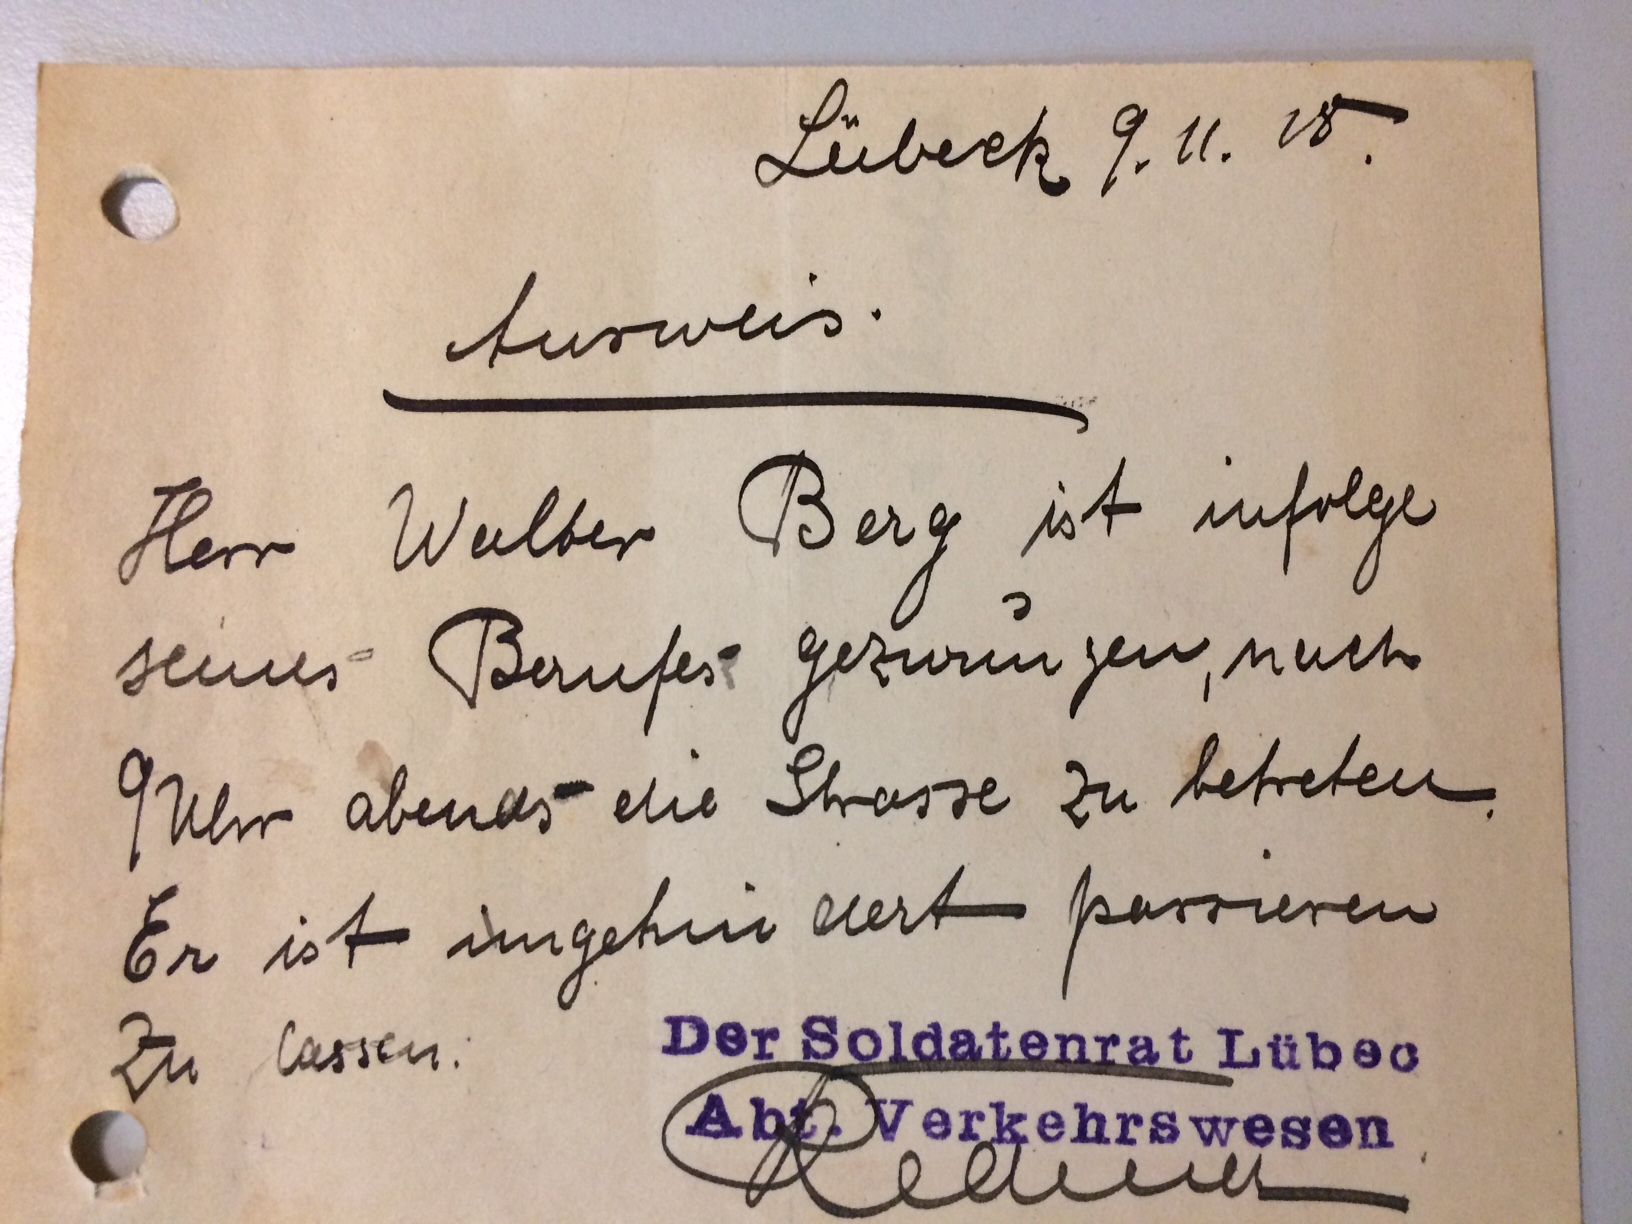 Lübeck 9. 11. 18.
Ausweis.
Herr Walter Berg ist infolge
seines Berufes gezwungen, nach
9 Uhr abends die Strasse zu betreten.
Er ist ungehindert passieren
zu lassen.
Der Soldatenrat Lübec
Abt. Verkehrswesen